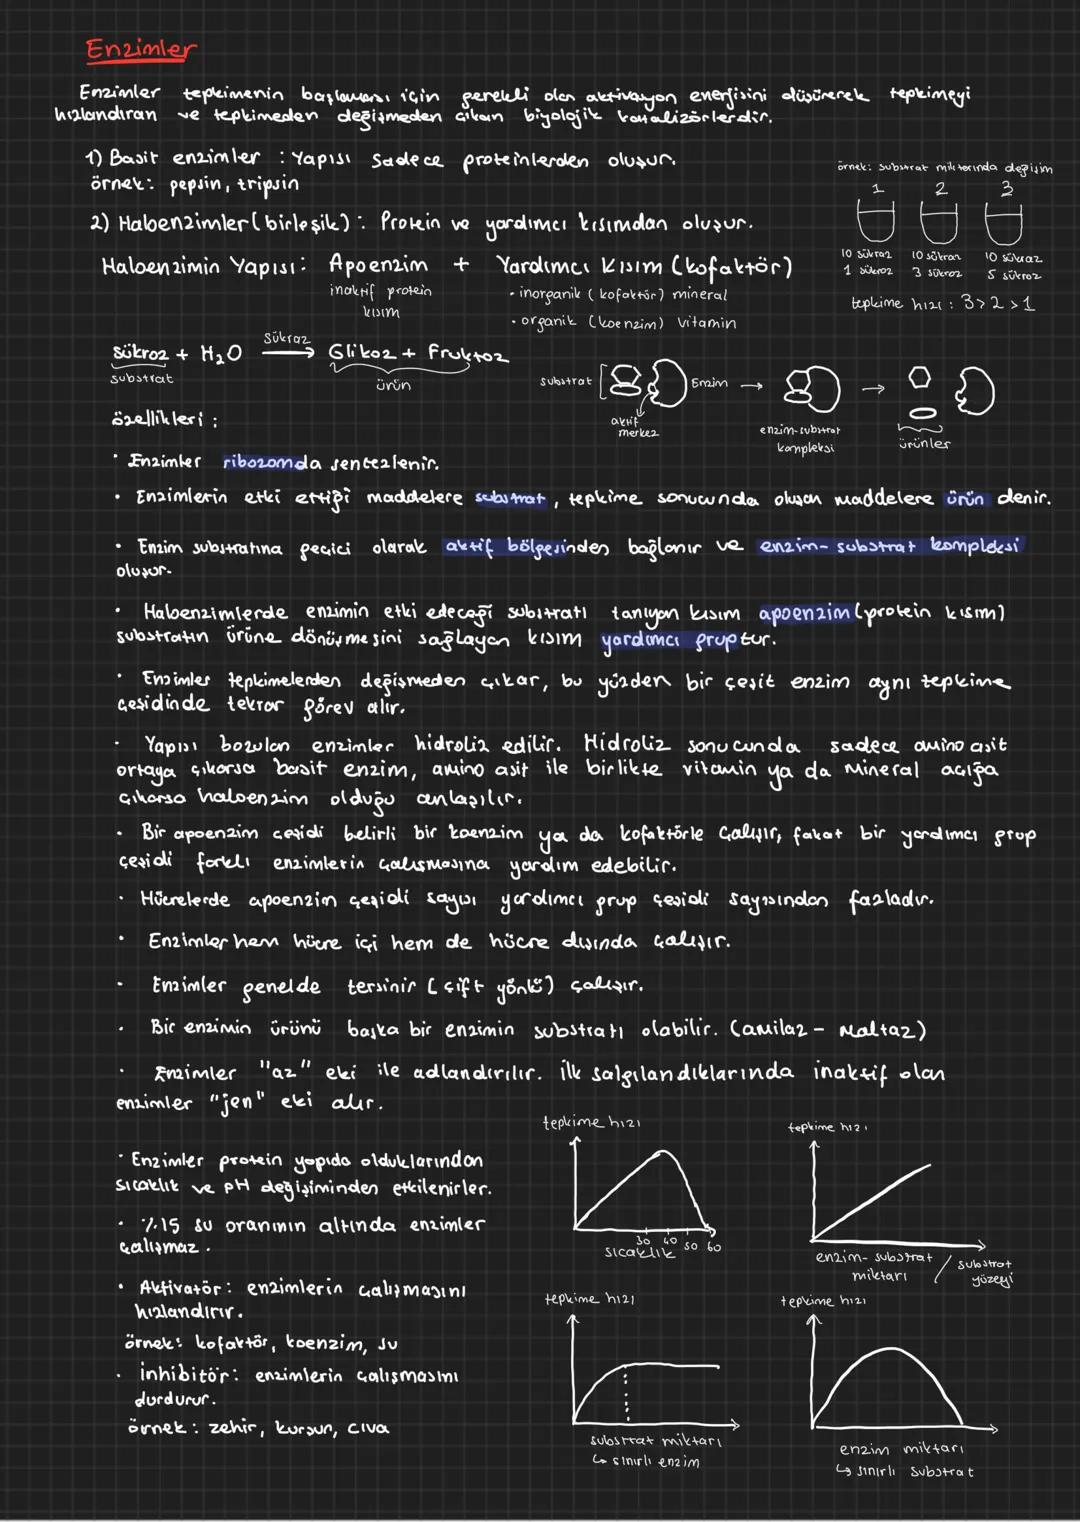 Enzimler
Enzimler tepkimenin başlaması için gerekli olan aktivasyon enerjisini düşürerek tepkimeyi
hızlandıran ve tepkimeden değişmeden çıkan biyolojik katalizörlerdir.
1) Basit enzimler : Yapısı sadece proteinlerden oluşur.
örnek: pepsin, tripsin
2) Haloenzimler (birleşik) : Protein ve yardımcı kısımdan oluşur.
Haloenzimin Yapısı: Apoenzim + Yardımcı Kısım (kofaktör)
inaktif protein
kısım
• inorganik (kofaktör) mineral
• organik (koenzim) vitamin
örnek: substrat miktarında değişim
1 2 3
10 sükraz 10 sükraz 10 sükraz
1 sükroz 3 sükroz 5 sükroz
tepkime hızı : 3 > 2 > 1
Sükraz
Sükroz + H2O → Glikoz + Fruktoz
substrat
ürün
substrat
Enzim
aktif
merkez
enzim-substrat
kompleksi
ürünler
özellikleri :
• Enzimler ribozomda sentezlenir.
• Enzimlerin etki ettiği maddelere substrat, tepkime sonucunda oluşan maddelere ürün denir.
• Enzim substratına geçici olarak aktif bölgesinden bağlanır ve enzim-substrat kompleksi
oluşur.
• Haloenzimlerde enzimin etki edeceği substratı tanıyan kısım apoenzim (protein kısım)
substratın ürüne dönüşmesini sağlayan kısım yardımcı gruptur.
• Enzimler tepkimelerden değişmeden çıkar, bu yüzden bir çeşit enzim aynı tepkime
çeşidinde tekrar görev alır.
• Yapısı bozulan enzimler hidroliz edilir. Hidroliz sonucunda sadece amino asit
ortaya çıkarsa basit enzim, amino asit ile birlikte vitamin ya da Mineral açığa
çıkarsa haloenzim olduğu anlaşılır.
• Bir apoenzim çeşidi belirli bir koenzim ya da kofaktörle çalışır, fakat bir yardımcı grup
çeşidi farklı enzimlerin çalışmasına yardım edebilir.
• Hücrelerde apoenzim çeşidi sayısı yardımcı grup çeşidi sayısından fazladır.
• Enzimler hem hücre içi hem de hücre dışında çalışır.
• Enzimler genelde tersinir (çift yönlü) çalışır.
• Bir enzimin ürünü başka bir enzimin substratı olabilir. (amilaz - Maltaz)
• Enzimler "az" eki ile adlandırılır. ilk salgılandıklarında inaktif olan
enzimler "jen" eki alır.
• Enzimler protein yapıda olduklarından
sıcaklık ve pH değişiminden etkilenirler.
• %15 su oranının altında enzimler
çalışmaz.
• Aktivatör: enzimlerin çalışmasını
hızlandırır.
örnek: kofaktör, koenzim, su
• inhibitör: enzimlerin çalışmasını
durdurur.
örnek : zehir, kurşun, cıva
tepkime hızı
30 40 50 60
sıcaklık
tepkime hızı
enzim-substrat
miktarı
/ substrat
yüzeyi
tepkime hızı
substrat miktarı
↳ sınırlı enzim
tepkime hızı
enzim miktarı
↳ sınırlı substrat